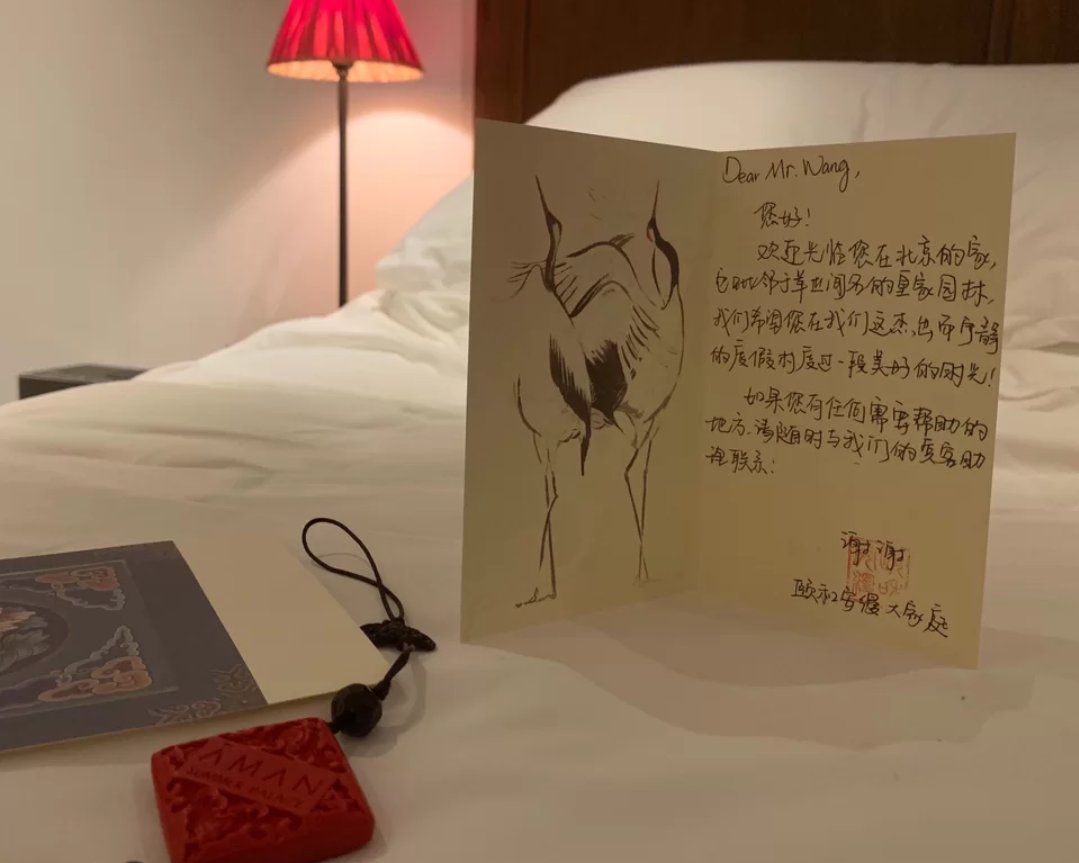 Dear Mr. Wang,
您好!
欢迎光临您在北京的家,
它毗邻于举世闻名的皇家园林,
我们希望您在我们这杰出而宁静
的度假村度过一段美好的时光!
如果您有任何需要帮助的
地方,请随时与我们的宾客助
理联系!
谢谢
颐和安缦大家庭
AMAN
SUMMER PALACE